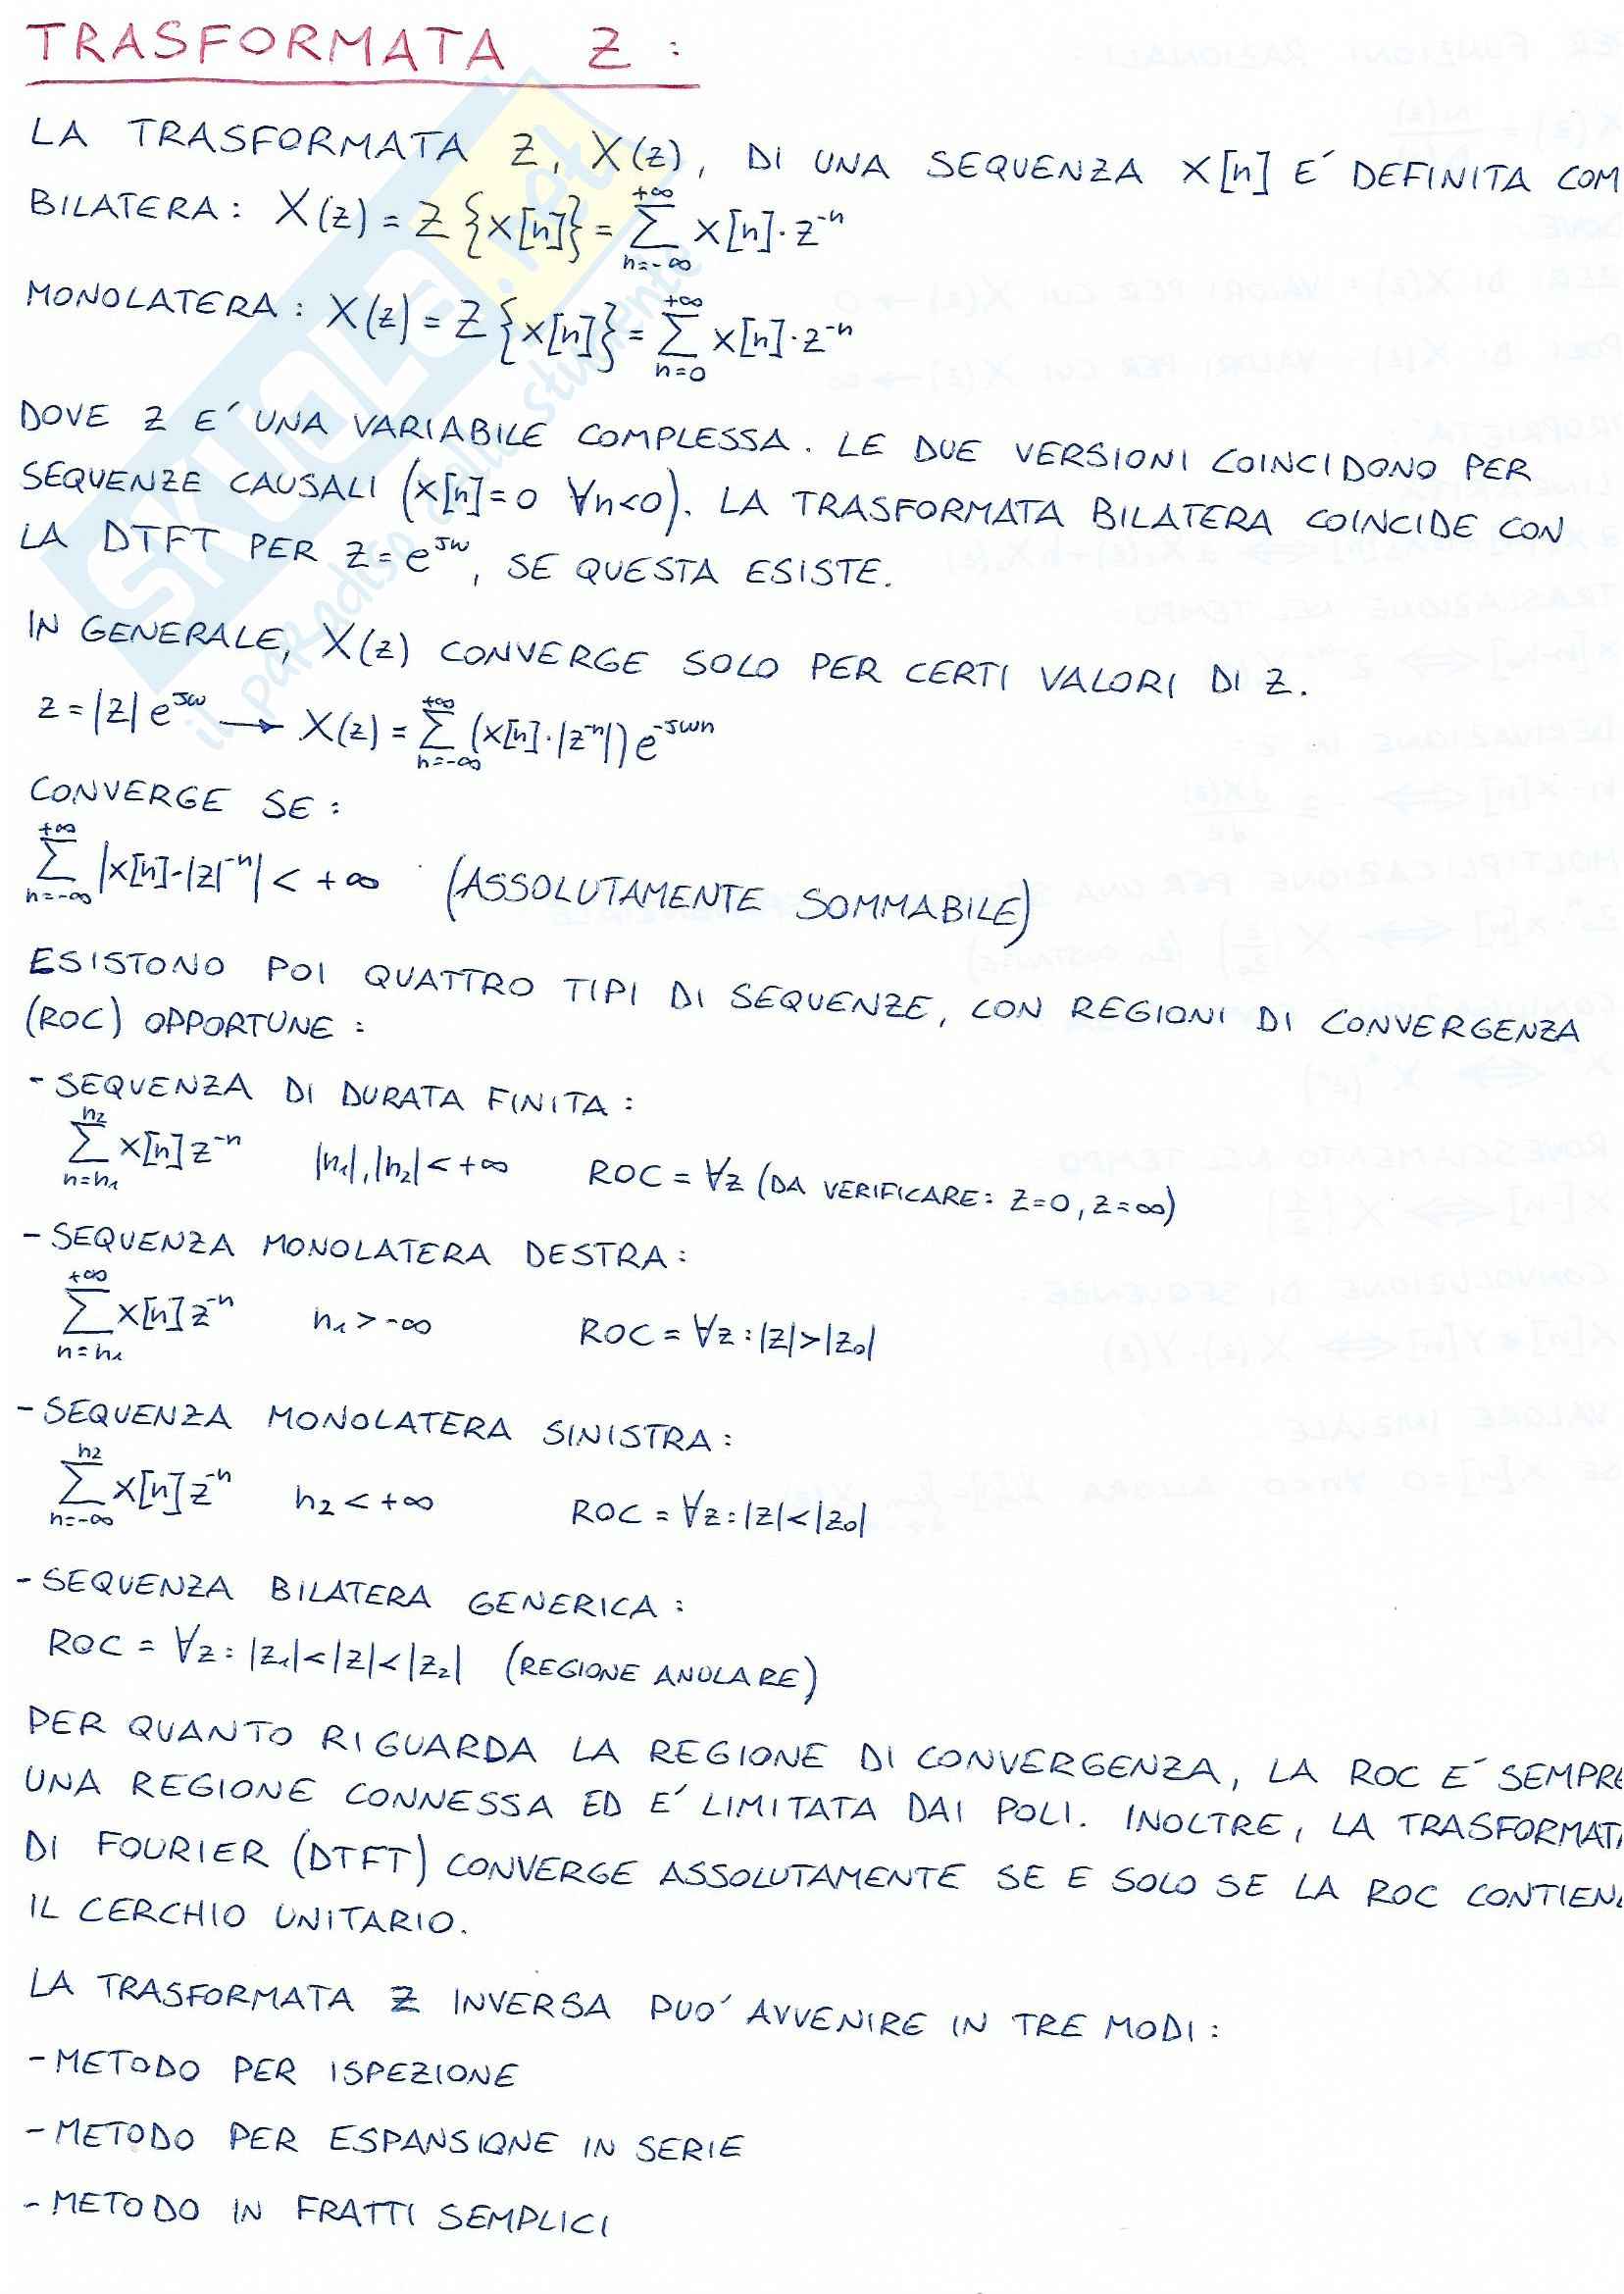 TRASFORMATA Z :
LA TRASFORMATA Z, X(z), DI UNA SEQUENZA X[n] E' DEFINITA COM
BILATERA: X(z) = Z {x[n]} = ∑_{n=-∞}^{+∞} x[n]·z^{-n}
MONOLATERA: X(z) = Z {x[n]} = ∑_{n=0}^{+∞} x[n]·z^{-n}
DOVE Z E' UNA VARIABILE COMPLESSA. LE DUE VERSIONI COINCIDONO PER
SEQUENZE CAUSALI (x[n]=0 ∀n<0). LA TRASFORMATA BILATERA COINCIDE CON
LA DTFT PER z=e^{jω}, SE QUESTA ESISTE.
IN GENERALE, X(z) CONVERGE SOLO PER CERTI VALORI DI Z.
z=|z| e^{jω} → X(z) = ∑_{n=-∞}^{+∞} (x[n]·|z^{-n}|) e^{-jωn}
CONVERGE SE :
∑_{n=-∞}^{+∞} |x[n]·|z|^{-n}| < +∞ (ASSOLUTAMENTE SOMMABILE)
ESISTONO POI QUATTRO TIPI DI SEQUENZE, CON REGIONI DI CONVERGENZA
(ROC) OPPORTUNE :
- SEQUENZA DI DURATA FINITA :
∑_{n=n₁}^{n₂} x[n] z^{-n} |n₁|,|n₂| < +∞ ROC = ∀z (DA VERIFICARE: z=0, z=∞)
- SEQUENZA MONOLATERA DESTRA :
∑_{n=n₁}^{+∞} x[n] z^{-n} n₁ > -∞ ROC = ∀z : |z|>|z₀|
- SEQUENZA MONOLATERA SINISTRA :
∑_{n=-∞}^{n₂} x[n] z^{-n} n₂ < +∞ ROC = ∀z : |z|<|z₀|
- SEQUENZA BILATERA GENERICA :
ROC = ∀z : |z₁|<|z|<|z₂| (REGIONE ANULARE)
PER QUANTO RIGUARDA LA REGIONE DI CONVERGENZA, LA ROC E' SEMPRE
UNA REGIONE CONNESSA ED E' LIMITATA DAI POLI. INOLTRE, LA TRASFORMATA
DI FOURIER (DTFT) CONVERGE ASSOLUTAMENTE SE E SOLO SE LA ROC CONTIENE
IL CERCHIO UNITARIO.
LA TRASFORMATA Z INVERSA PUO' AVVENIRE IN TRE MODI :
- METODO PER ISPEZIONE
- METODO PER ESPANSIONE IN SERIE
- METODO IN FRATTI SEMPLICI
SKUOLA.net
il paradiso dello studente